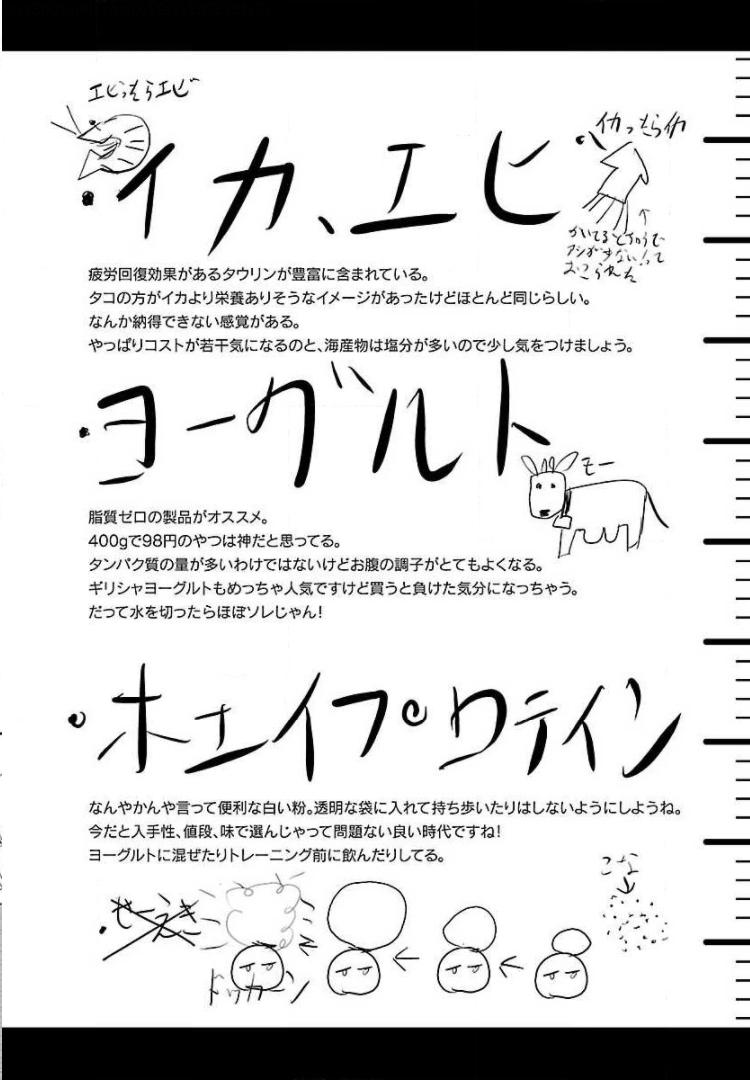 エビっちらエビ
イカっちらイカ
・イカ、エビ
かいてるとちゅうで
アシが少ない!って
おこられた
疲労回復効果があるタウリンが豊富に含まれている。
タコの方がイカより栄養ありそうなイメージがあったけどほとんど同じらしい。
なんか納得できない感覚がある。
やっぱりコストが若干気になるのと、海産物は塩分が多いので少し気をつけましょう。
・ヨーグルト
モー
脂質ゼロの製品がオススメ。
400gで98円のやつは神だと思ってる。
タンパク質の量が多いわけではないけどお腹の調子がとてもよくなる。
ギリシャヨーグルトもめっちゃ人気ですけど買うと負けた気分になっちゃう。
だって水を切ったらほぼソレじゃん!
・ホエイプロテイン
なんやかんや言って便利な白い粉。透明な袋に入れて持ち歩いたりはしないようにしようね。
今だと入手性、値段、味で選んじゃって問題ない良い時代ですね!
ヨーグルトに混ぜたりトレーニング前に飲んだりしてる。
こな
ドッカーン